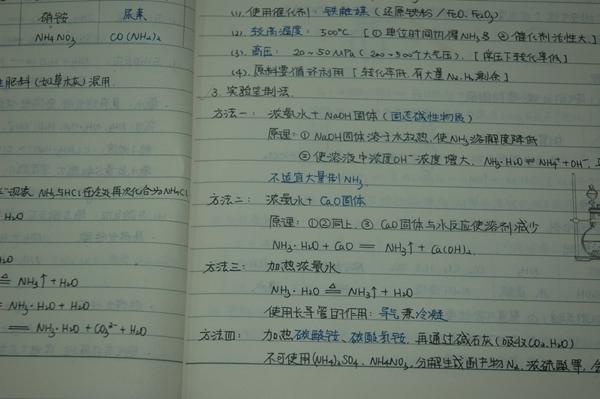 硝铵 尿素
NH₄NO₃ CO(NH₂)₂
肥料(如草木灰)混用
现象, NH₃与HCl在冷处再次化合为NH₄Cl
H₂O
H₂O
△ NH₃↑ + H₂O
NH₃·H₂O + H₂O
= NH₃·H₂O + CO₃²⁻ + H₂O
(1). 使用催化剂: 铁触媒 (还原铁粉/FeO、Fe₂O₃)
(2). 较高温度: 500℃ [① 单位时间内得NH₃多 ② 催化剂活性大]
(3). 高压: 20~50MPa (200~500个大气压). [常压下转化率低]
(4). 原料要循环利用 [转化率低, 有大量N₂、H₂剩余]
3. 实验室制法.
方法一: 浓氨水 + NaOH固体 (固态碱性物质)
原理: ① NaOH固体溶于水放热, 使NH₃溶解度降低
② 使溶液中浓度OH⁻浓度增大, NH₃·H₂O ⇌ NH₄⁺ + OH⁻,
不适宜大量制NH₃.
方法二: 浓氨水 + CaO固体
原理: ①②同上, ③ CaO固体与水反应使溶剂减少
NH₃·H₂O + CaO = NH₃↑ + Ca(OH)₂
方法三: 加热浓氨水
NH₃·H₂O △ NH₃↑ + H₂O
使用长导管的作用: 导气兼冷凝
方法四: 加热碳酸铵、碳酸氢铵, 再通过碱石灰(吸收CO₂、H₂O)
不可使用(NH₄)₂SO₄、NH₄NO₃, 分解生成副产物N₂、浓硫酸等,